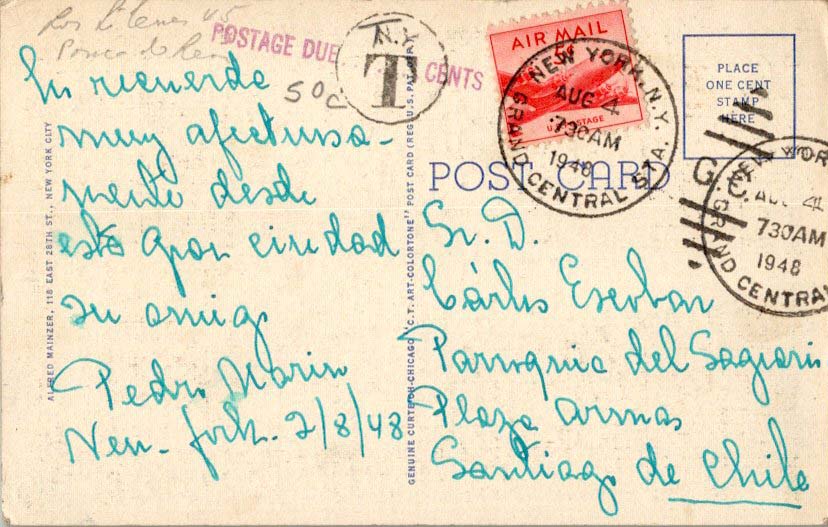 POSTAGE DUE
CENTS
N.Y.
T
50c
AIR MAIL
5¢
U.S. POSTAGE
NEW YORK, N.Y.
AUG 4
730AM
1948
GRAND CENTRAL STA.
PLACE
ONE CENT
STAMP
HERE
G.C.
NEW YOR
AUG 4
730AM
1948
GRAND CENTRAL
POST CARD
recuerda
muy afectuosa-
mente desde
esta gran ciudad
su amigo
Pedro Marin
New-York. 2/8/48
ALFRED MAINZER, 118 EAST 28TH ST., NEW YORK CITY
GENUINE CURTEICH-CHICAGO "C.T. ART-COLORTONE" POST CARD (REG. U.S. PAT. OFF.)
Sr. D.
Cárlos Escobar
Parroquia del Sagrario
Plaza armas
Santiago de Chile